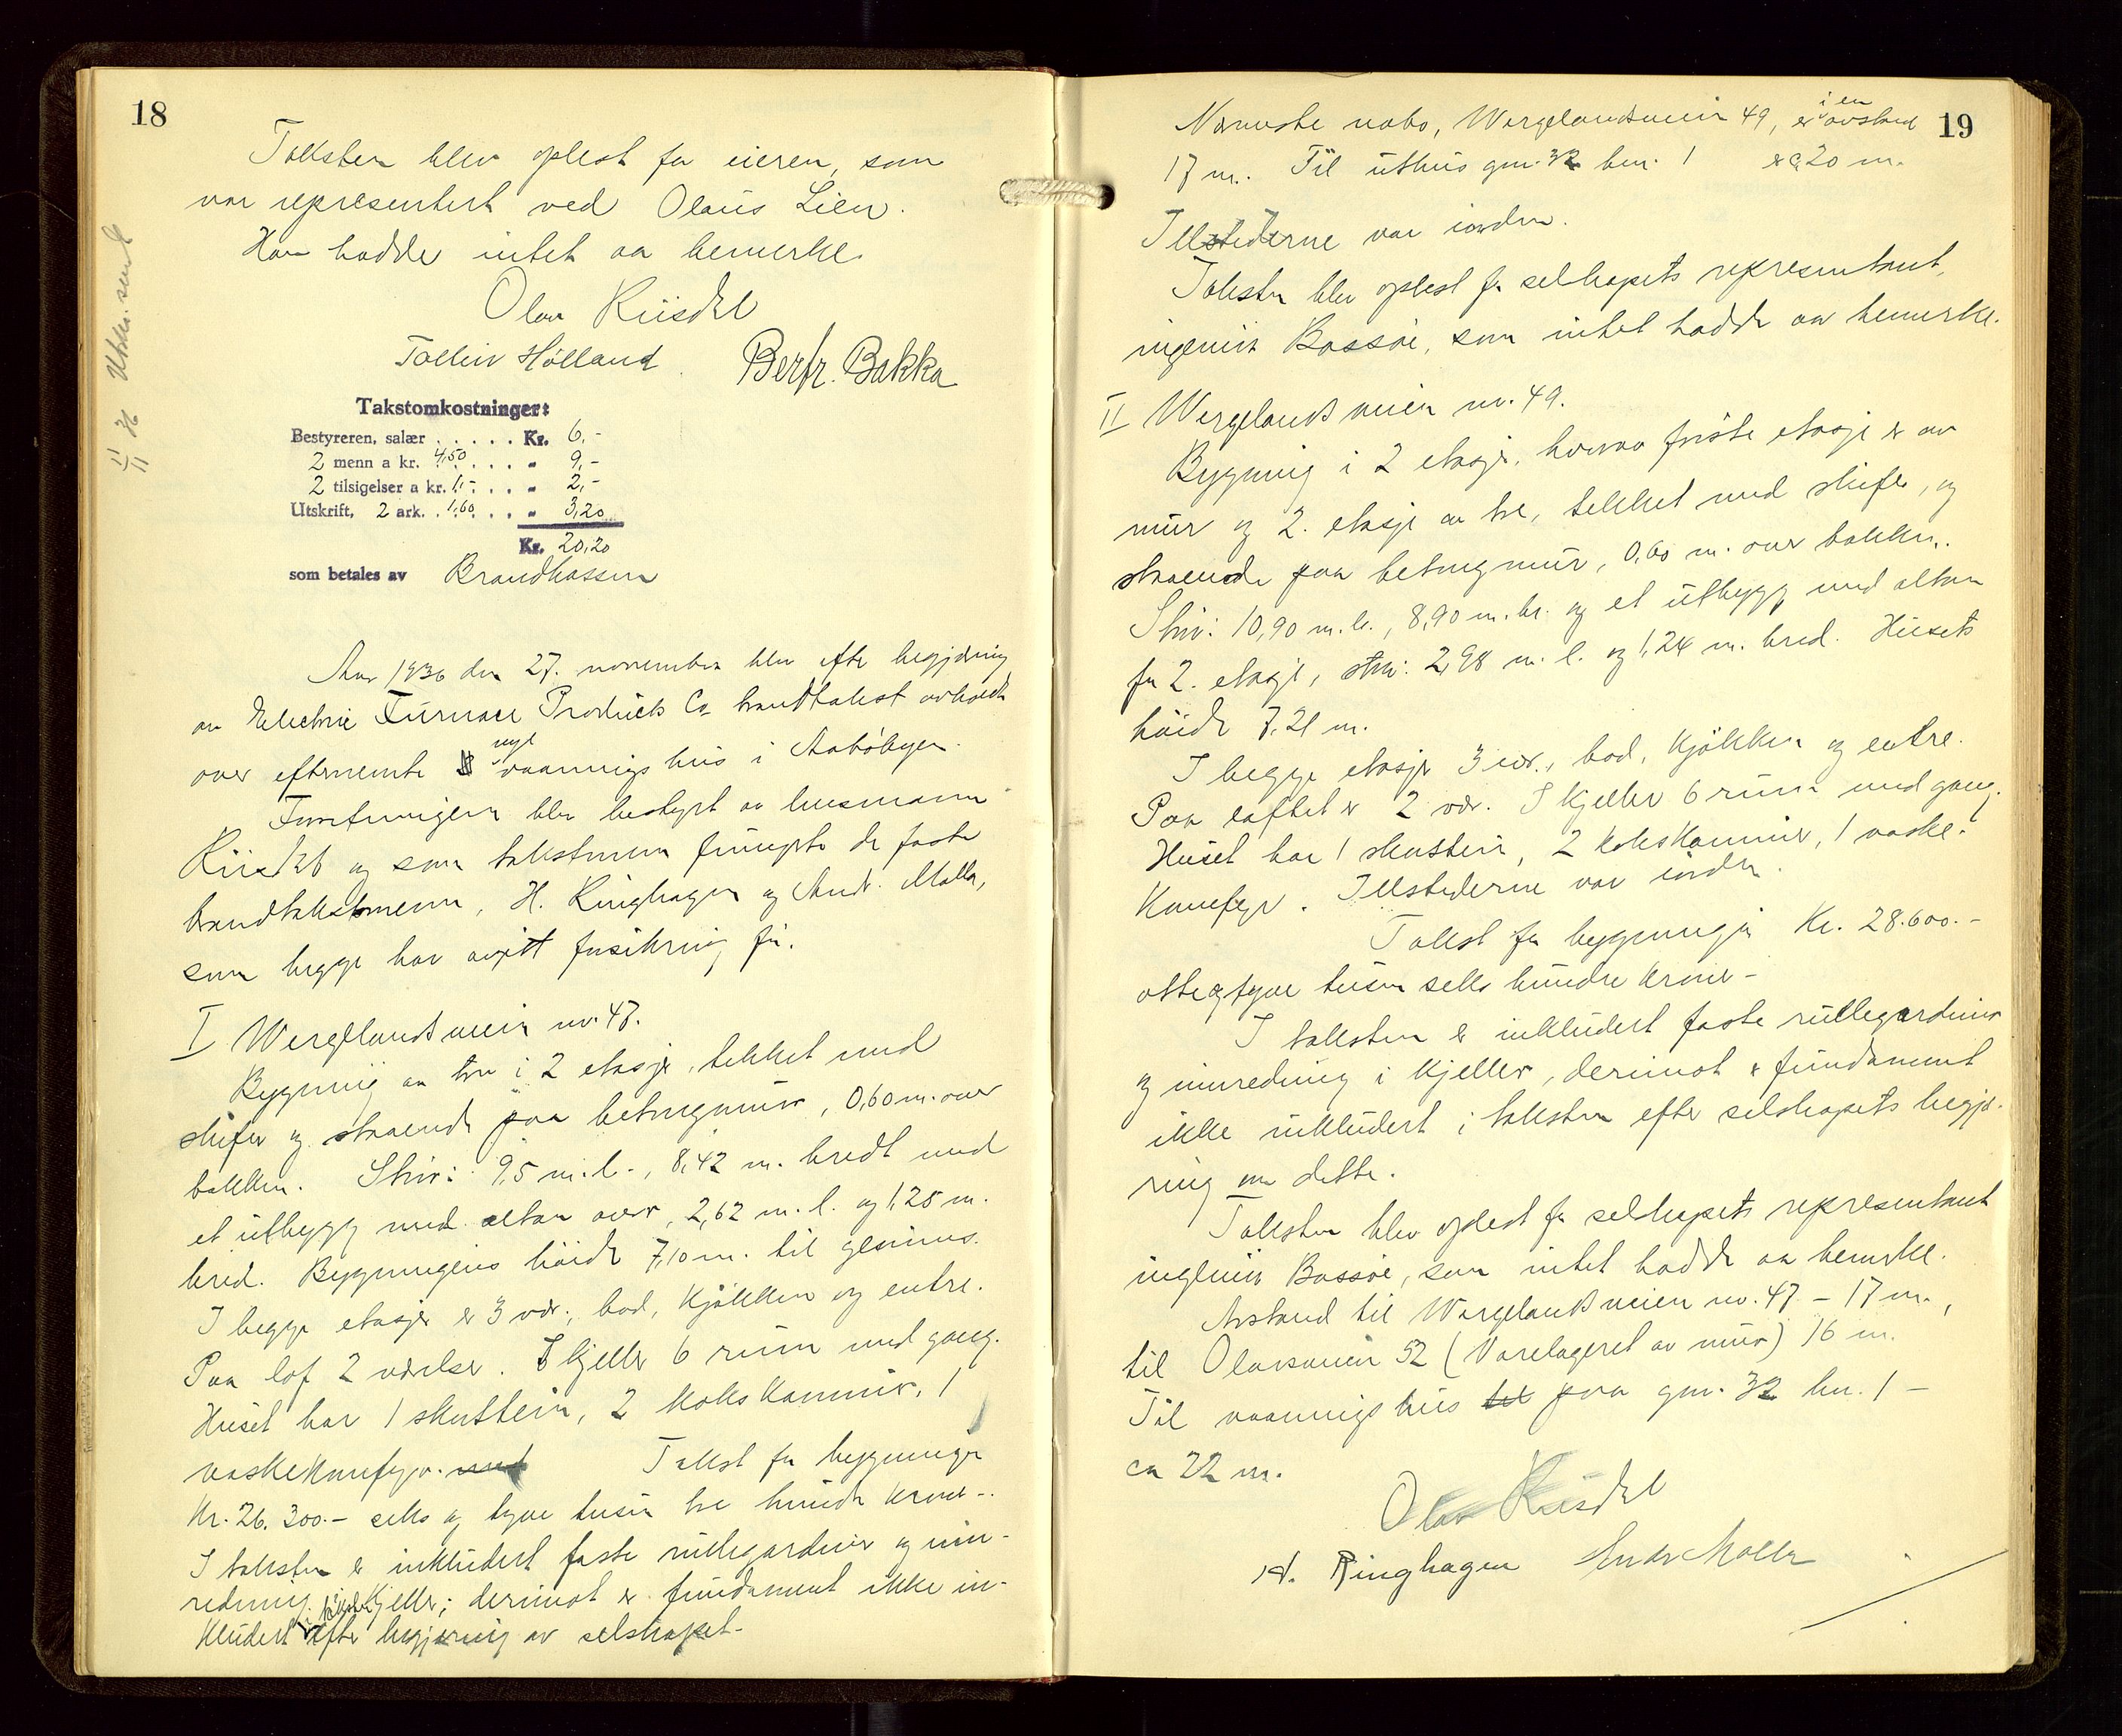 18
Taksten blev oplest for eieren, som
var representert ved Olaus Lien.
Han hadde intet aa bemerke.
Olav Riisdal
Tolleiv Hølland Berfr. Bakka
Takstomkostninger:
Bestyreren, salær . . . . . Kr. 6,-
2 menn a kr. 4,50 . . . . „ 9,-
2 tilsigelser a kr. 1,- . . . „ 2,-
Utskrift, 2 ark. . 1,60 . . . „ 3,20
Kr. 20,20
som betales av Brandkassen
11/11 36 Utskr. sendt
Aar 1936 den 27. november blev efter begjæring
av Electric Furnace Products Co brandtakst avholdt
over efternevnte nye vaaningshus i Aabøbyen.
Forretningen blev bestyrt av lensmann
Riisdal og som takstmenn fungerte de faste
brandtakstmenn, H. Ringhagen og Andr. Molla,
som begge har avgitt forsikring før.
I Wergelandsveien nr. 47.
Bygning av tre i 2 etasjer, tekket med
skifer og staaende paa betongmur, 0,60 m. over
bakken. Stør: 9,5 m. l., 8,42 m. bredt med
et utbygg med altan over, 2,62 m. l. og 1,25 m.
bred. Bygningens høide 7,10 m. til gesims.
I begge etasjer er 3 vær., bad, kjøkken og entre.
Paa loft 2 værelser. I kjeller 6 rum med gang.
Huset har 1 skorstein, 2 kokskaminer, 1
vaskekomfyr. med Takst for bygningen
Kr. 26.300.- seks og tyve tusen tre hundre kroner-.
I taksten er inkludert faste rullegardiner og inn-
redning i kjeller; derimot er fundament ikke in-
kludert i taksten efter begjæring av selskapet.
19
Nærmeste nabo, Wergelandsveien 49, er i en avstand
17 m. Til uthus gnr. 32 bnr. 1 er ca 20 m.
Ildstederne var iorden.
Taksten blev oplest for selskapets representant,
ingeniør Bassøe, som intet hadde aa bemerke.
II Wergelandsveien nr. 49.
Bygning i 2 etasjer, hvorav første etasje er av
mur og 2. etasje av tre, tekket med skifer, og
staaende paa betongmur, 0,60 m. over bakken.
Stør: 10,90 m. l., 8,90 m. br. og et utbygg med altan
for 2. etasje, stør: 2,98 m. l. og 1,24 m. bred. Husets
høide 7,21 m.
I begge etasjer 3 vær., bad, kjøkken og entre.
Paa loftet er 2 vær. I kjeller 6 rum med gang.
Huset har 1 skorstein, 2 kokskaminer, 1 vaske-
komfyr. Ildstederne var iorden.
Takst for bygningen Kr. 28.600.-
otteogtyve tusen seks hundre kroner-
I taksten er inkludert faste rullegardiner
og innredning i kjeller, derimot er fundament
ikke inkludert i taksten efter selskapets begjæ-
ring om dette.
Taksten blev oplest for selskapets representant
ingeniør Bassøe, som intet hadde aa bemerke.
Avstand til Wergelandsveien nr. 47 - 17 m.,
til Olavsveien 52 (Varelageret av mur) 16 m.
Til vaaningshus til paa gnr. 32 bnr. 1 -
ca 22 m.
Olav Riisdal
H. Ringhagen Andr Molla